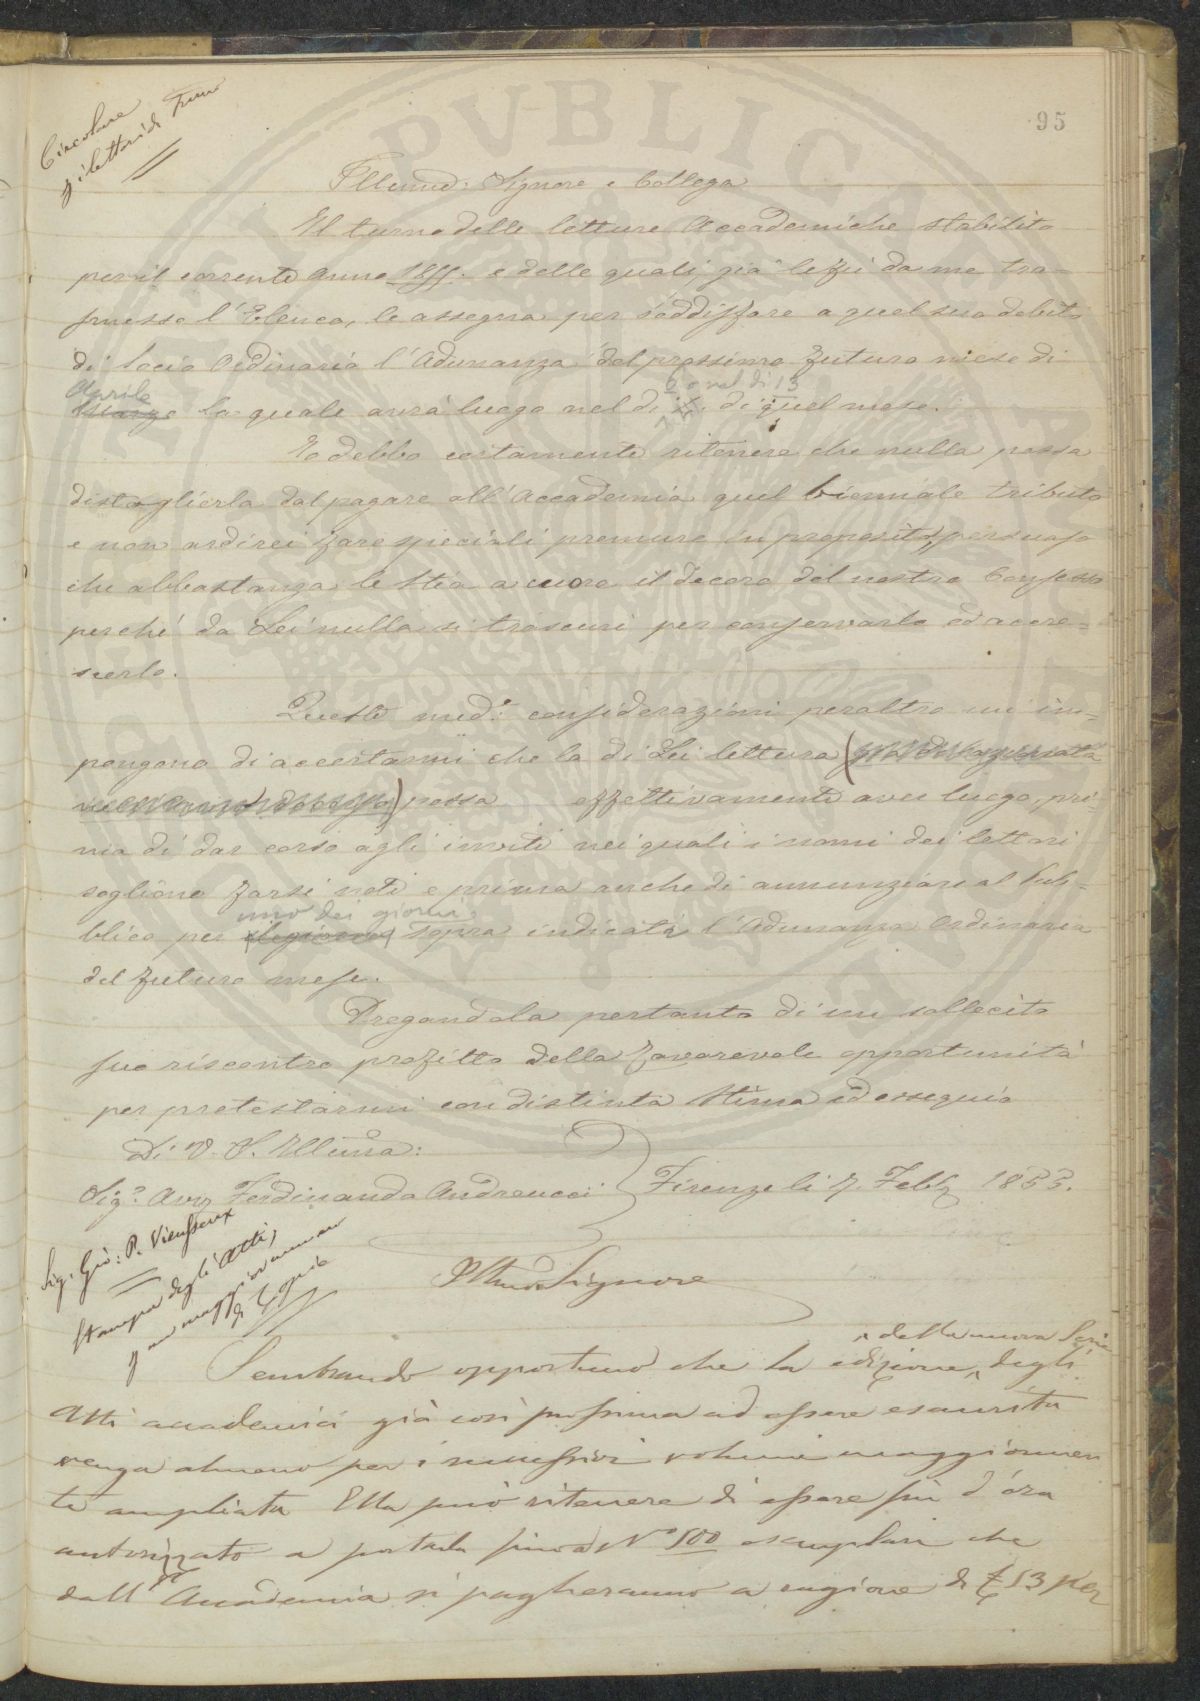 95
Circolare
ai lettori di Turno
Illmo: Signore e Collega
Il turno delle letture Accademiche stabilito
per il corrente anno 1855. e delle quali già le fu da me tra=
smesso l'Elenco, le assegna per soddisfare a quel suo debito
di Socio Ordinario l'Adunanza del prossimo futuro mese di
Aprile
Marzo la quale avrà luogo nel dì 6 o nel dì 13 di quel mese.
Io debbo certamente ritenere che nulla possa
distoglierla dal pagare all'Accademia quel biennale tributo
e non ardirei fare speciali premure in proposito, persuaso
che abbastanza le stia a cuore il decoro del nostro Consesso
perché da Lei nulla si trascuri per conservarlo ed accre=
scerlo.
Queste med.e considerazioni peraltro mi im=
pongono di accertarmi che la di Lei lettura
possa effettivamente aver luogo, pri=
ma di dar corso agli inviti nei quali i nomi dei lettori
sogliono farsi noti e prima anche di annunziare al Pub=
uno dei giorni
blico per il giorno sopra indicati l'Adunanza Ordinaria
del futuro mese.
Pregandola pertanto di un sollecito
suo riscontro profitto della favorevole opportunità
per protestarmi con distinta stima ed ossequio
Di V. S. Illma:
Sig.r Avv Ferdinando Andreucci Firenze li 7. Febb 1855.
Sig. Gio: P. Vieusseux
Stampa degli Atti,
p un maggior numero
di Copie
Illmo Signore
della nuova Serie
Sembrando opportuno che la edizione degli
Atti accademici già così prossima ad essere esaurita
venga almeno per i successivi volumi maggiormen
te ampliata Ella può ritenere di essere fin d'ora
autorizzato a portarla fino a No 500 esemplari che
dall'Accademia si pagheranno a ragione di £ 13 per